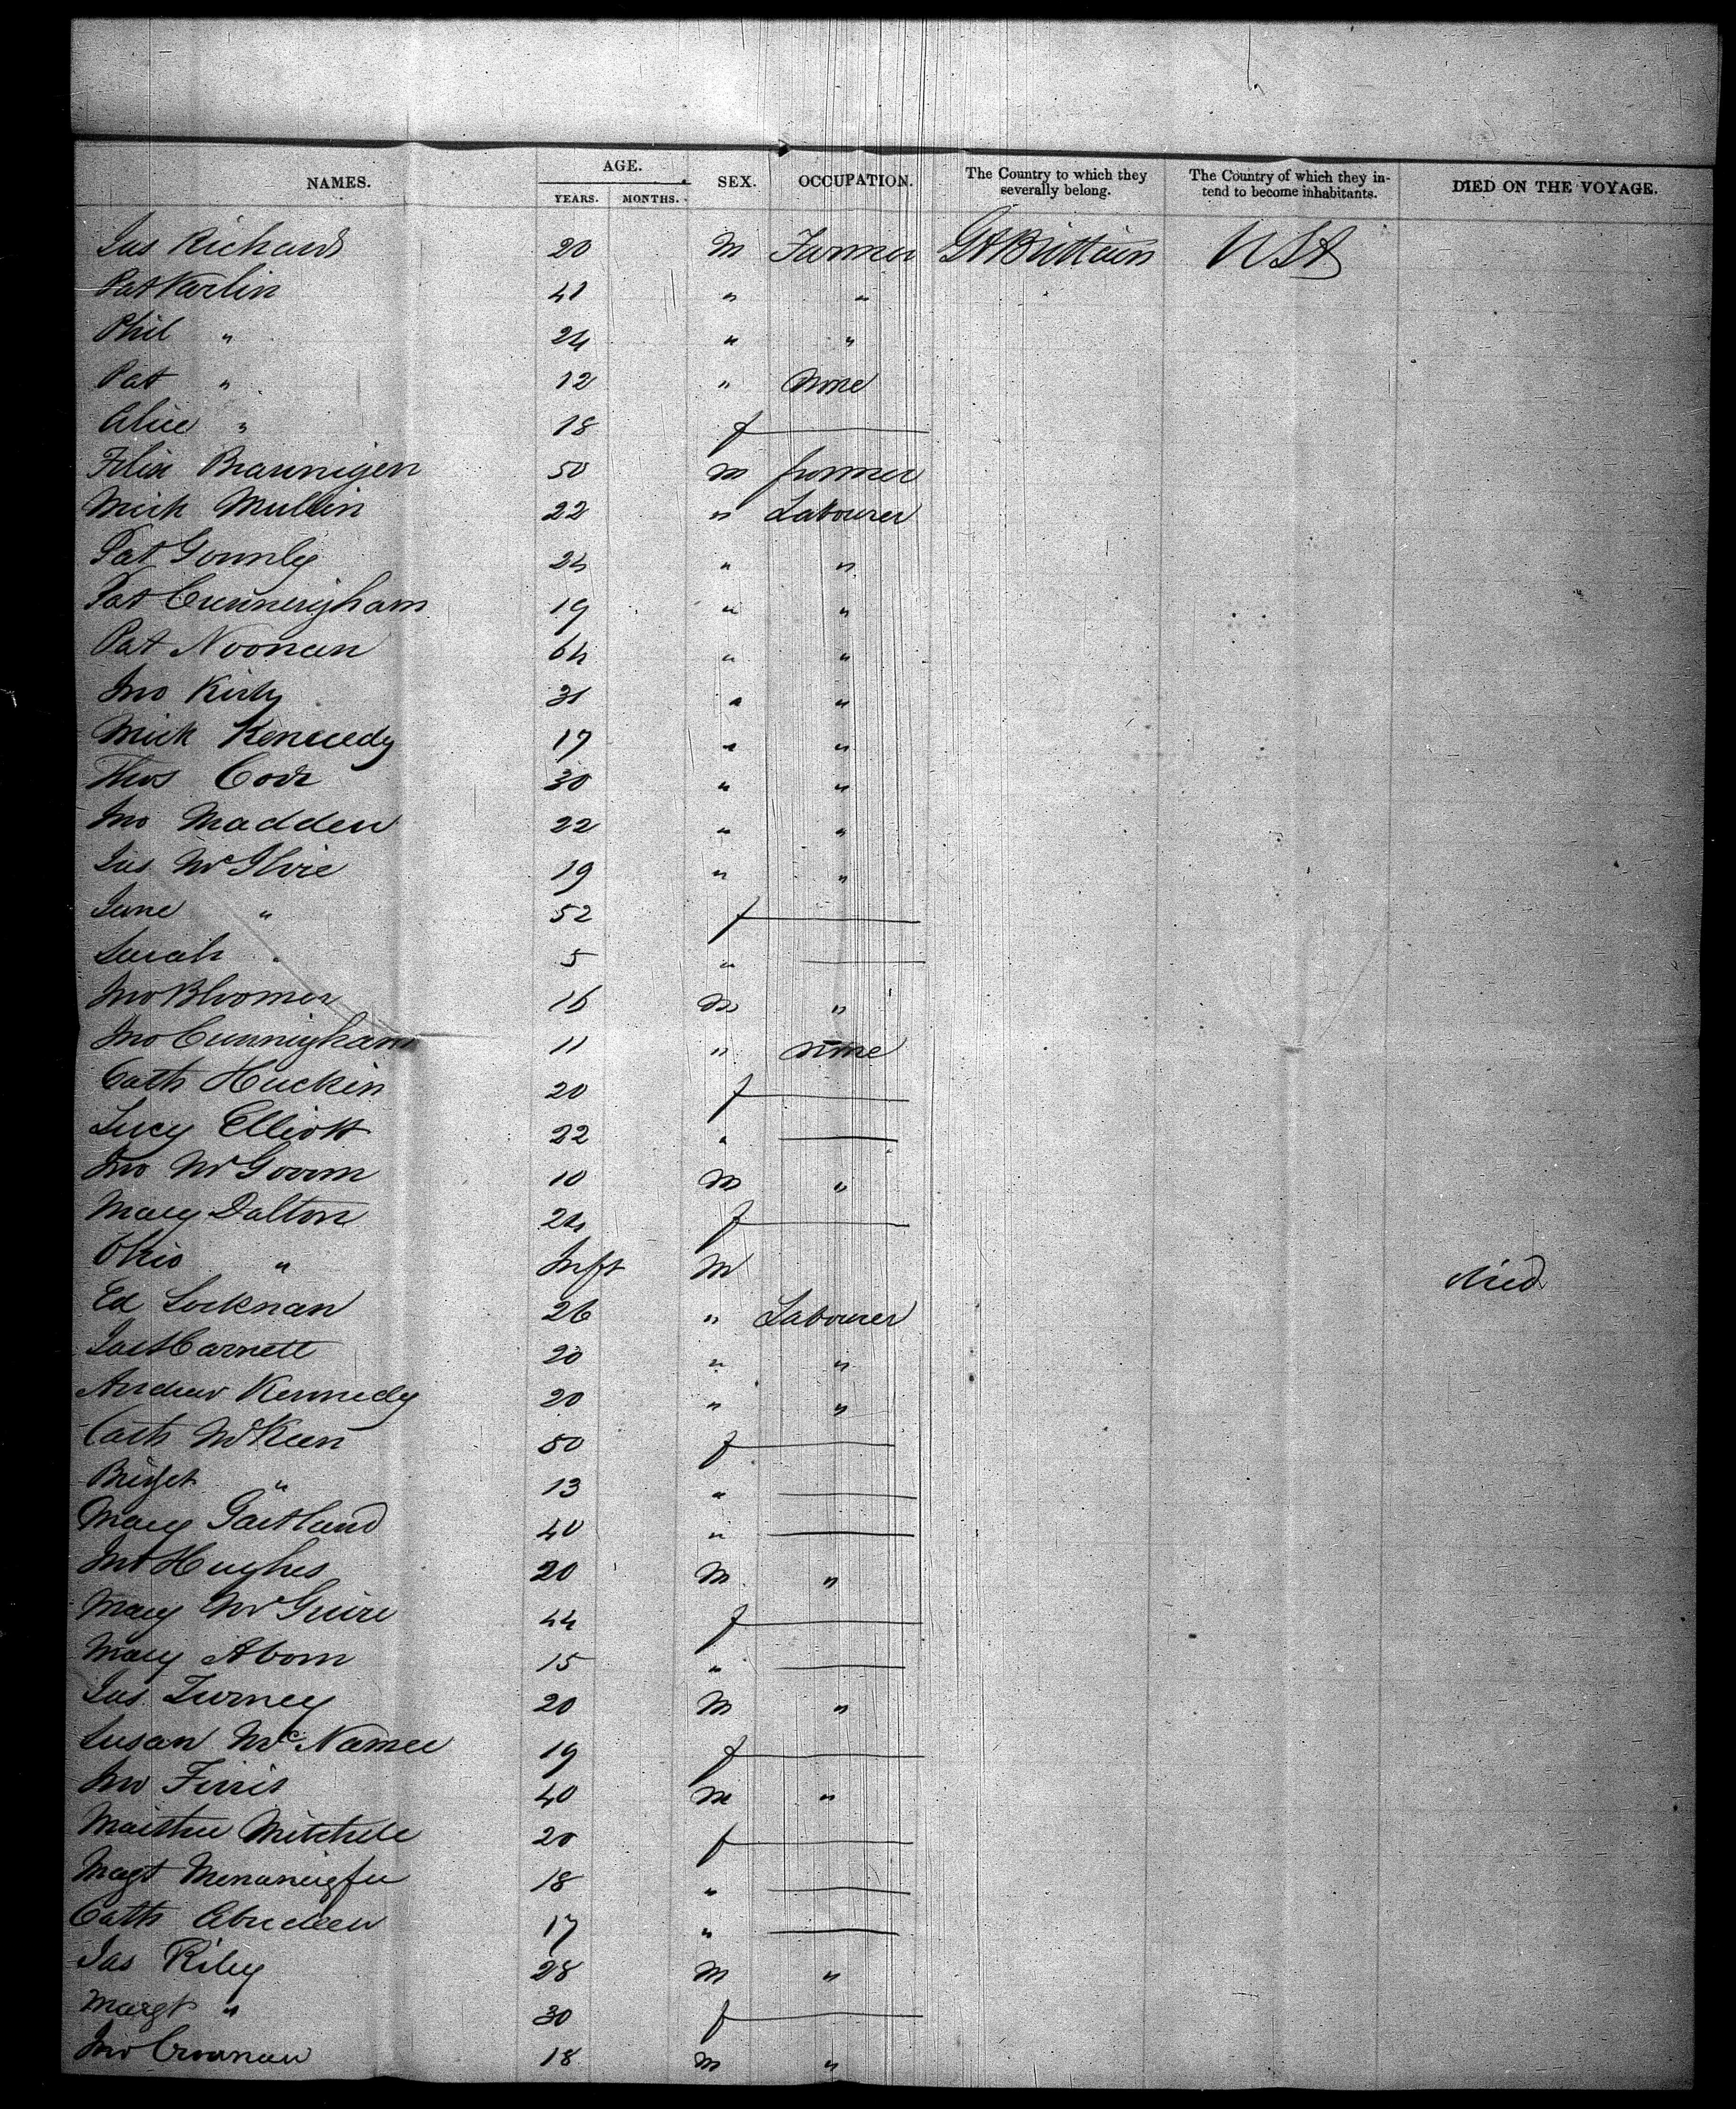 NAMES. AGE. YEARS. MONTHS. SEX. OCCUPATION. The Country to which they severally belong. The Country of which they intend to become inhabitants. DIED ON THE VOYAGE.
Jas Richards 20 M Farmer Gt Brittain USA
Pat Karlin 41 " "
Phil " 24 " "
Pat " 12 " None
Alice " 18 f
Felix Braunigen 50 m farmer
Mick Mullin 22 " Labourer
Pat Gounly 24 " "
Pat Cunningham 19 " "
Pat Noonan 64 " "
Jno Kirk 31 " "
Mick Kennedy 17 " "
Thos Codr 30 " "
Jno Madden 22 " "
Jas 19 " "
Jane " 52 f
Sarah " 5 "
Jno Bloomer 16 M "
Jno Cunningham 11 " none
Cath Huckin 20 f
Lucy Elliott 22 "
Jno McGovern 10 M "
Mary Dalton 24 f
Ohio " Inft M died
Ed Locknan 26 " Labourer
Barnett 20 " "
Andrew Kennedy 20 " "
Cath McKeen 50 f
Bridget " 13 "
Mary Gartland 40 "
Jno Hughes 20 M "
Mary McGuire 44 f
Mary Aborn 15 "
Jas Turney 20 M "
Susan McNamee 19 f
Jno Firris 40 M "
Mitchele 20 f
Magt 18 "
Cath Abudeen 17 "
Jas Riley 28 M "
Margt " 30 f
Jno Croanan 18 M "